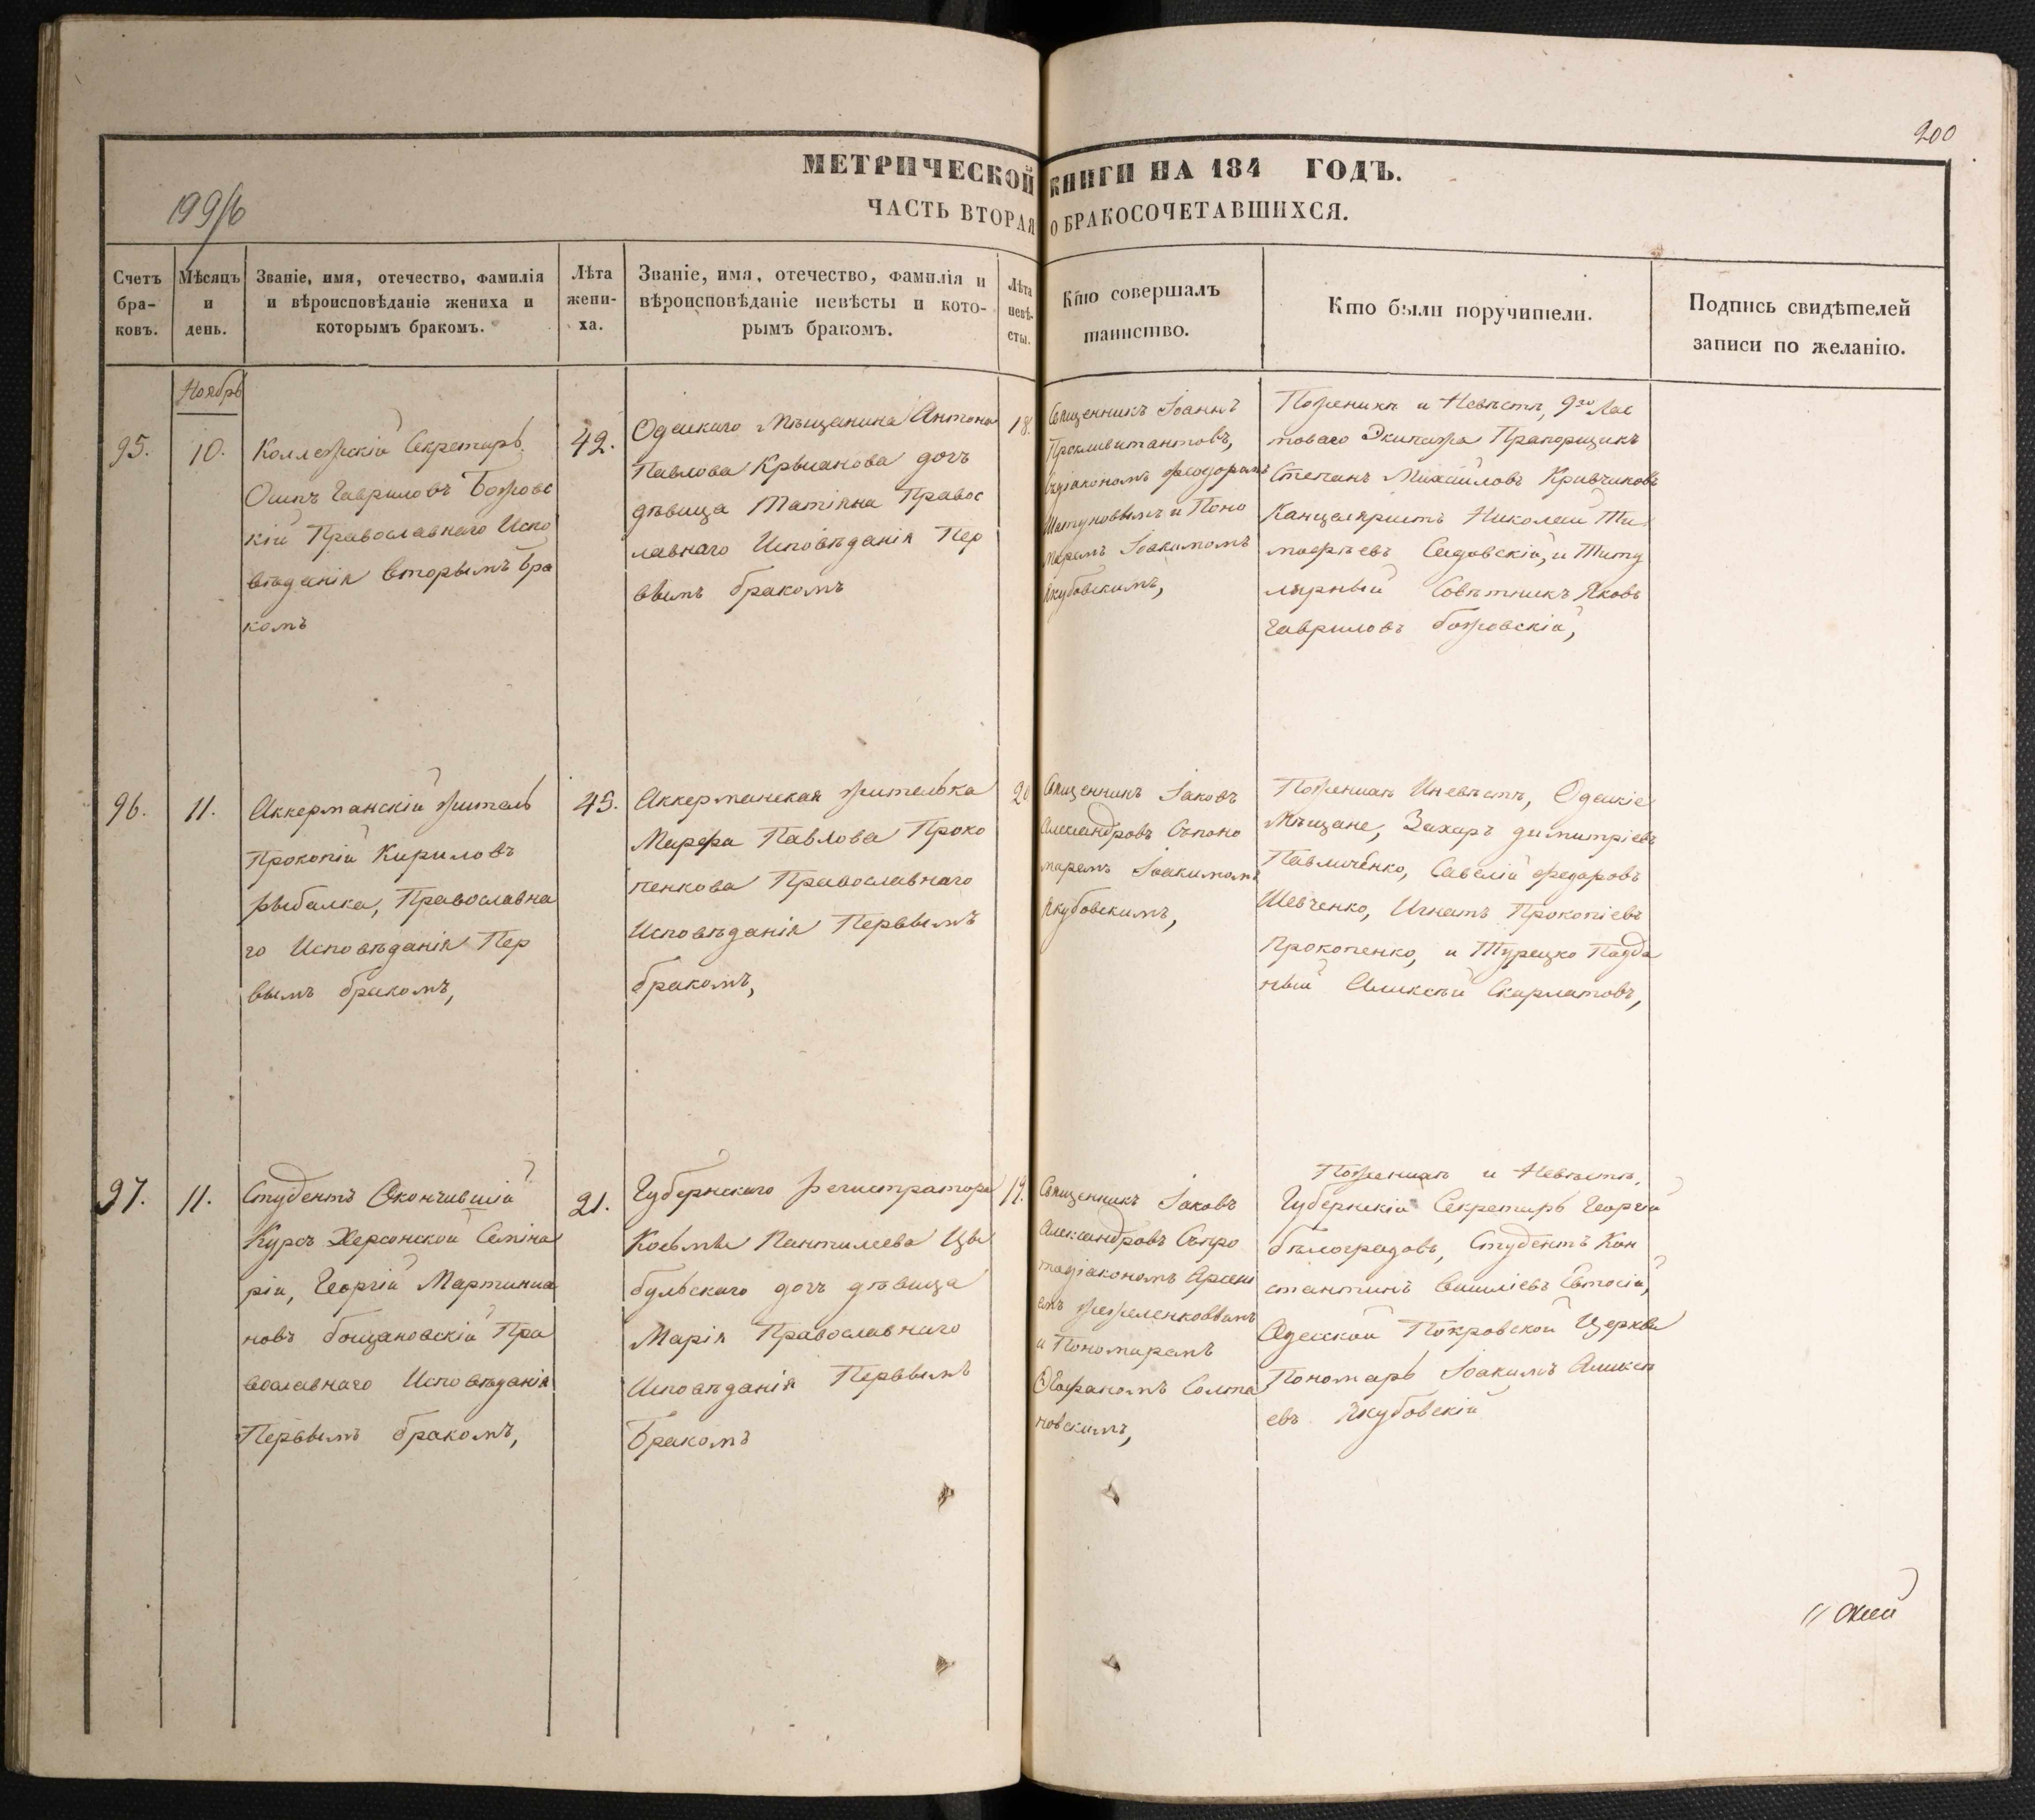 200
199/б
МЕТРИЧЕСКОЙ КНИГИ НА 184 ГОДЪ.
ЧАСТЬ ВТОРАЯ О БРАКОСОЧЕТАВШИХСЯ.
Счетъ
бра-
ковъ.
Мѣсяцъ
и
день.
Званіе, имя, отечество, фамилія
и вѣроисповѣданіе жениха и
которымъ бракомъ.
Лѣта
жени-
ха.
Званіе, имя, отечество, фамилія и
вѣроисповѣданіе невѣсты и кото-
рымъ бракомъ.
Лѣта
невѣ-
сты.
Кто совершалъ
таинство.
Кто были поручители.
Подпись свидѣтелей
записи по желанію.
Ноябрь
95.
10.
Коллежскій Секретарь
Осипъ Гавриловъ Божовс
кій Православнаго Испо
вѣданія вторымъ бра
комъ
42.
Одескаго Мѣщанина Антона
Павлова Крыжанова дочъ
дѣвица Татіяна Правос
лавнаго Исповѣданія Пер
вымъ бракомъ
18.
Священникъ Іоаннъ
Съдіакономъ Феодоромъ
и Поно
маремъ Іоакимомъ
Якубовскимъ,
Поженихѣ и Невѣстѣ, 9го Лас
товаго Экипажа Прапорщикъ
Степанъ Михайловъ Кривчиковъ
Канцеляристъ Николай Ти
мофѣевъ Садовскій, и Титу
лярный Совѣтникъ Яковъ
Гавриловъ Божовскій,
96.
11.
Аккерманскій житель
Прокопій Кириловъ
рыбалка, Православна
го Исповѣданія Пер
вымъ бракомъ,
45.
Аккерманская жителька
Марфа Павлова Проко
пенкова Православнаго
Исповѣданія Первымъ
бракомъ,
20
Священникъ Іаковъ
Александровъ Съпоно
маремъ Іоакимомъ
Якубовскимъ,
Поженихѣ Иневѣстѣ, Одескіе
Мѣщане, Захаръ димитріевъ
Павличенко, Савелій Федаровъ
Шевченко, Игнатъ Прокопіевъ
Прокопенко, и Турецко Падда
ный Алексѣй Скарлатовъ,
97.
11.
Студентъ Окончившій
Курсъ Херсонской Семина
ріи, Георгій Мартиниа
новъ бощановскій Пра
вославнаго Исповѣданія
Первымъ бракомъ,
21.
Губернскаго Регистратора
Косьмы Пантилеева Цы
бульскаго дочъ дѣвица
Марія Православнаго
Исповѣданія Первымъ
Бракомъ
19.
Священникъ Іаковъ
Александровъ Съпро
тодіакономъ Арсені
емъ Жежеленковымъ
и Пономаремъ
новскимъ,
Поженихѣ и Невѣстѣ,
Губернскій Секретарь Георгій
бѣлоградовъ, Студентъ Кон
стантинъ Василіевъ
Одесской Покровской Церкви
Пономарь Іоакимъ Алексѣ
евъ Якубовскій